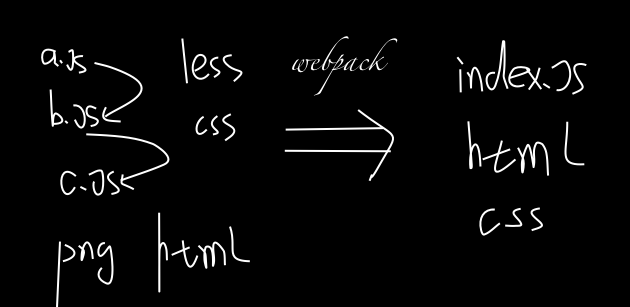 a.JS
b.JS
c.JS
png
less
css
html
webpack
index.JS
html
css